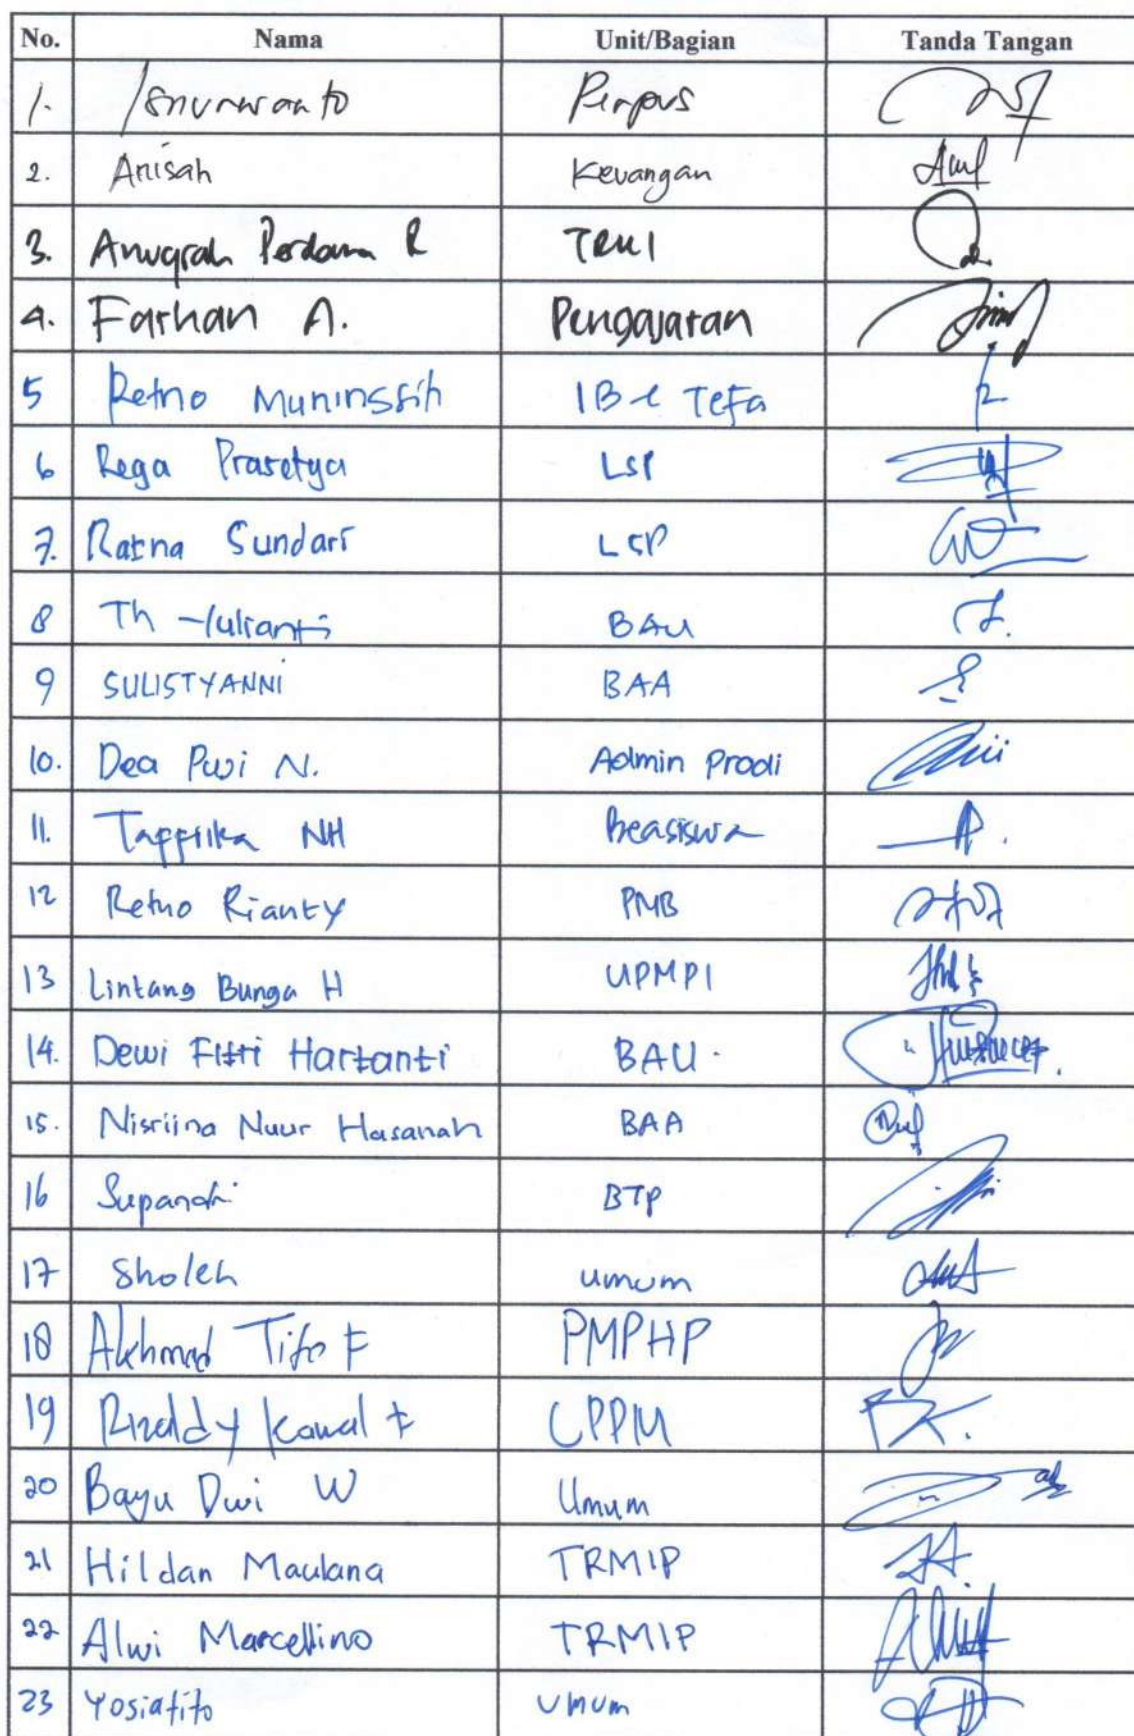 No. Nama Unit/Bagian Tanda Tangan
1. Isnurwanto Perpus
2. Anisah Keuangan
3. Anugrah Perdana R TRUI
4. Farhan A. Pengajaran
5 Retno Muningsih IB & Tefa
6 Rega Prasetya LSP
7. Ratna Sundari LSP
8 Th Yulianti BAU
9 SULISTYANNI BAA
10. Dea Puji N. Admin Prodi
11. NH Beasiswa
12 Retno Rianty PMB
13 Lintang Bunga H UPMPI
14. Dewi Fitri Hartanti BAU
15. Nisriina Nuur Hasanah BAA
16 Supandi BTP
17 Sholeh umum
18 Akhmad Tito F PMPHP
19 Kamal F LPPM
20 Bayu Dwi W Umum
21 Hildan Maulana TRMIP
22 Alwi Marcellino TRMIP
23 Yosiatito umum